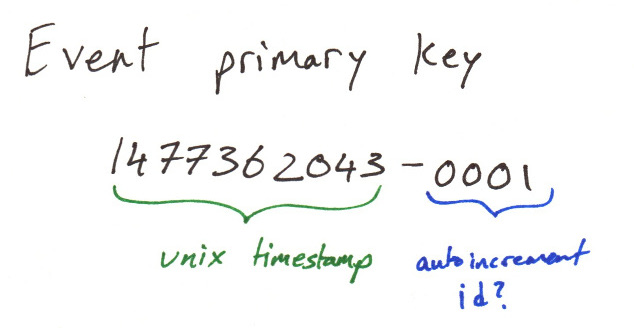 Event primary key
1477362043-0001
unix timestamp autoincrement
id?